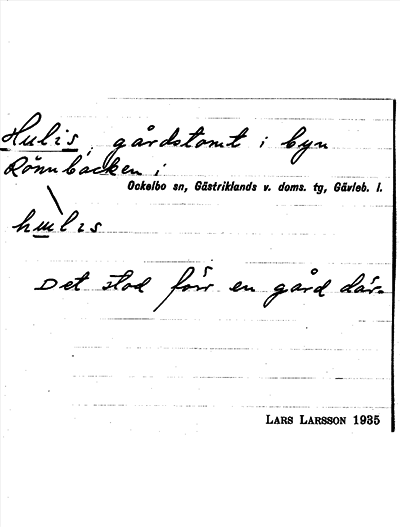 Hulis, gårdstomt i byn
Rönnbacken i
Ockelbo sn, Gästriklands v. doms. tg, Gävleb. l.
hulis
Det stod förr en gård där.
LARS LARSSON 1935